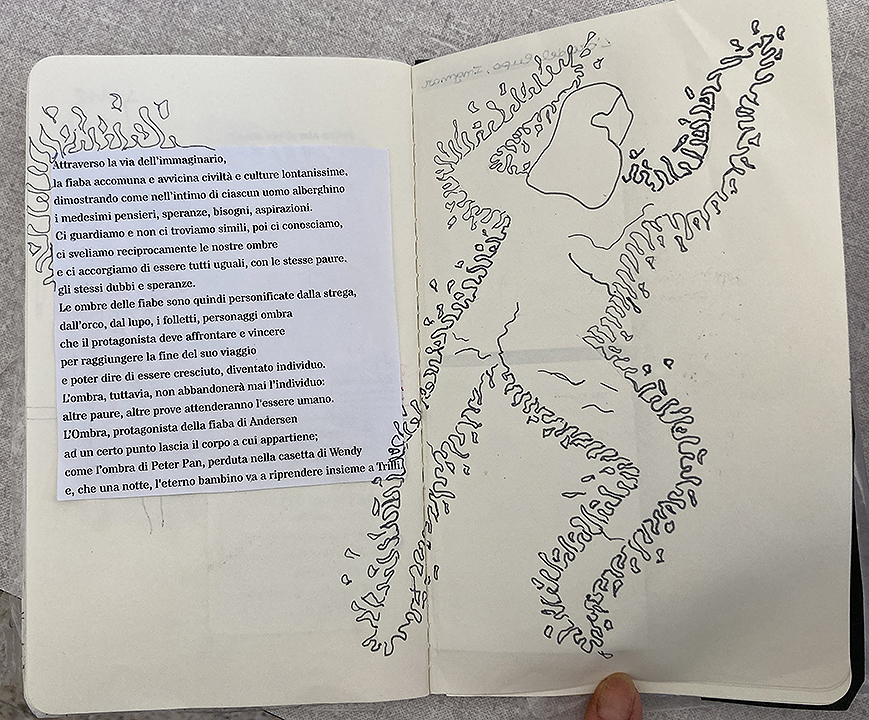 Attraverso la via dell'immaginario,
la fiaba accomuna e avvicina civiltà e culture lontanissime,
dimostrando come nell'intimo di ciascun uomo alberghino
i medesimi pensieri, speranze, bisogni, aspirazioni.
Ci guardiamo e non ci troviamo simili, poi ci conosciamo,
ci sveliamo reciprocamente le nostre ombre
e ci accorgiamo di essere tutti uguali, con le stesse paure,
gli stessi dubbi e speranze.
Le ombre delle fiabe sono quindi personificate dalla strega,
dall'orco, dal lupo, i folletti, personaggi ombra
che il protagonista deve affrontare e vincere
per raggiungere la fine del suo viaggio
e poter dire di essere cresciuto, diventato individuo.
L'ombra, tuttavia, non abbandonerà mai l'individuo:
altre paure, altre prove attenderanno l'essere umano.
L'Ombra, protagonista della fiaba di Andersen
ad un certo punto lascia il corpo a cui appartiene;
come l'ombra di Peter Pan, perduta nella casetta di Wendy
e, che una notte, l'eterno bambino va a riprendere insieme a Trilli